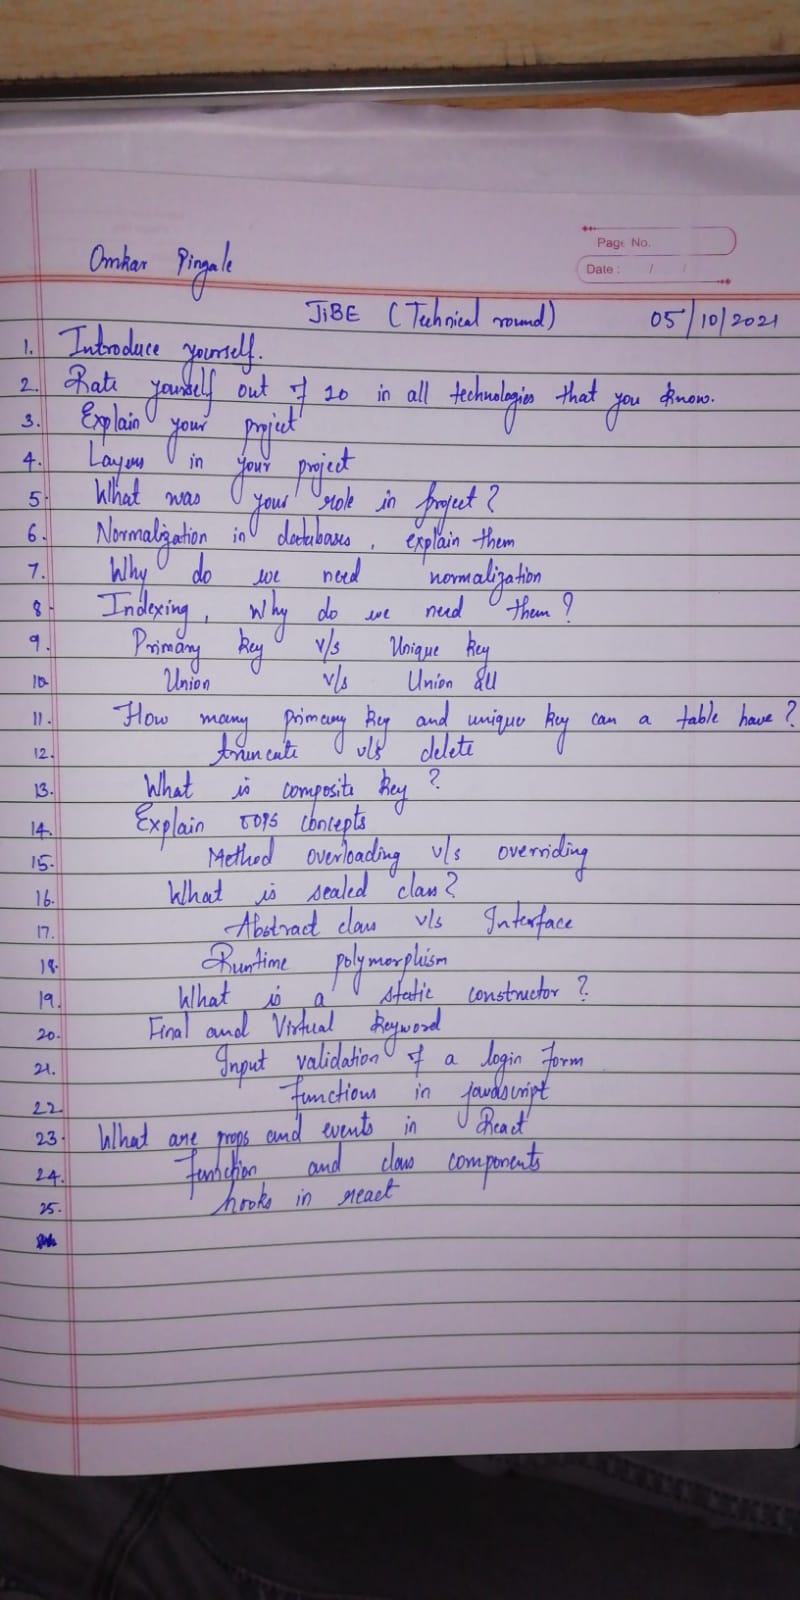 Page No.
Date : / /
Omkar Pingale
JiBE (Technical round) 05/10/2021
1. Introduce yourself.
2. Rate yourself out of 10 in all technologies that you know.
3. Explain your project
4. Layers in your project
5. What was your role in project?
6. Normalization in databases, explain them
7. Why do we need normalization
8. Indexing, Why do we need them?
9. Primary key v/s Unique key
10. Union v/s Union All
11. How many primary key and unique key can a table have?
12. truncate v/s delete
13. What is composite key?
14. Explain OOPS concepts
15. Method overloading v/s overriding
16. What is sealed class?
17. Abstract class v/s Interface
18. Runtime polymorphism
19. What is a static constructor?
20. Final and Virtual keyword
21. Input validation of a login form
22. functions in javascript
23. What are props and events in React
24. function and class components
25. hooks in react